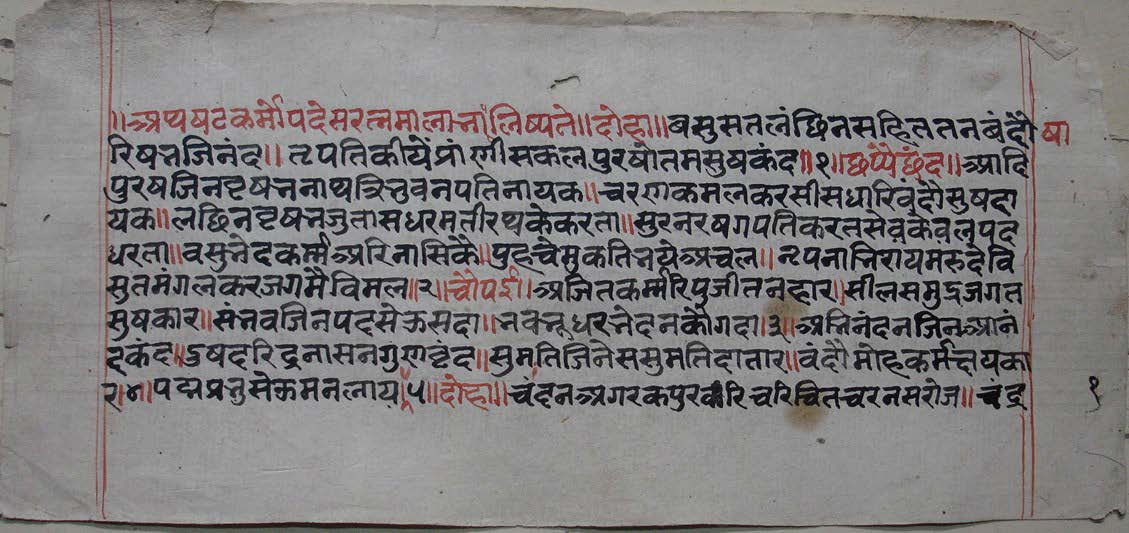 ॥अथ षटकर्मोपदेसरत्नमाला भाषा लिष्यते॥दोहा॥वसुमसतलंछिनसहिततनबंदौ
रिषभजिनंद॥नृपतिकीर्यें प्रांणीसकल पुरषोतमसुषकंद॥१॥छप्पै छंद॥आदि
पुरषजिनवृषभनाथत्रिभुवनपतिनायक॥चरणकमलकरसीसधारिवंदौसुषदा
यक॥लछिनवृषभजुतासधरमतीरथकेकरता॥सुरनरषगपतिकरतसेवकेवलपद
धरता॥वसुभेदकर्म्मअरिनासिकै॥पुहचेमुकतिभयेअचल॥नृपनाभिरायमरुदेवि
सुतमंगलकरजगमैविमल॥२॥चौपई॥अजितकर्म्मरिपुजीतनहार॥सीलसमुद्रजगत
सुषकार॥संभवजिनपदसेऊसदा॥भवभूधरभेदनकौगदा॥३॥अभिनंदनजिनआनं
दकंद॥दुषदरिद्रनासनगुणवृंद॥सुमतिजिनेससुमतिदातार॥वंदौमोहकर्मक्षयका
र॥४॥पद्मप्रभुसेऊमनलाय॥५॥दोहा॥चंदनअगरकपुरकरिचरिचितचरनसरोज॥चंद्र
१